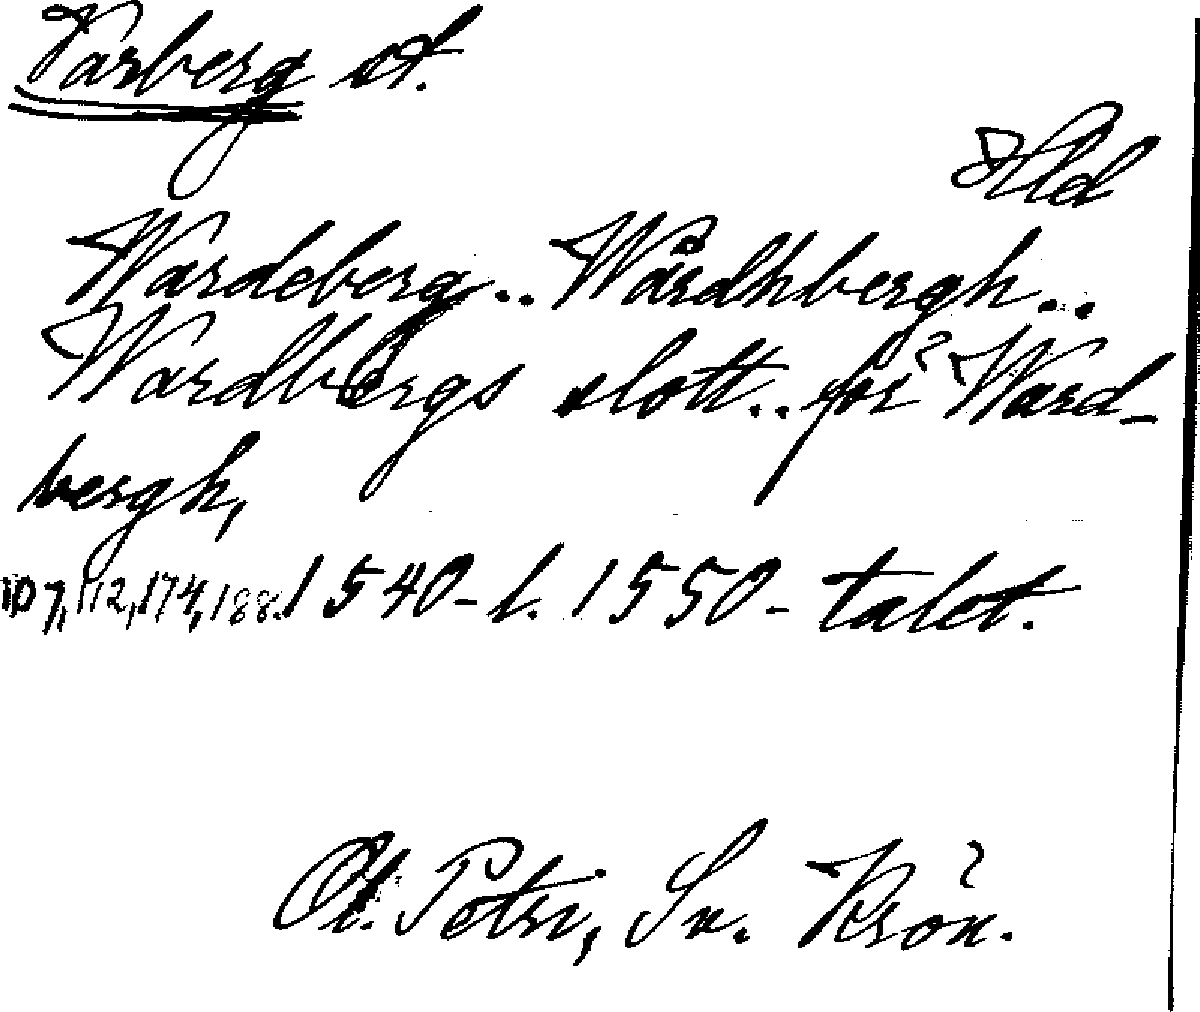 Varberg st.
Hld
Wardeberg.. Wårdhbergh..
Wardbergs slott.. för Ward-
bergh,
107, 112, 174, 188. 1540- l. 1550-talet.
Ol. Petri, Sv. Krön.